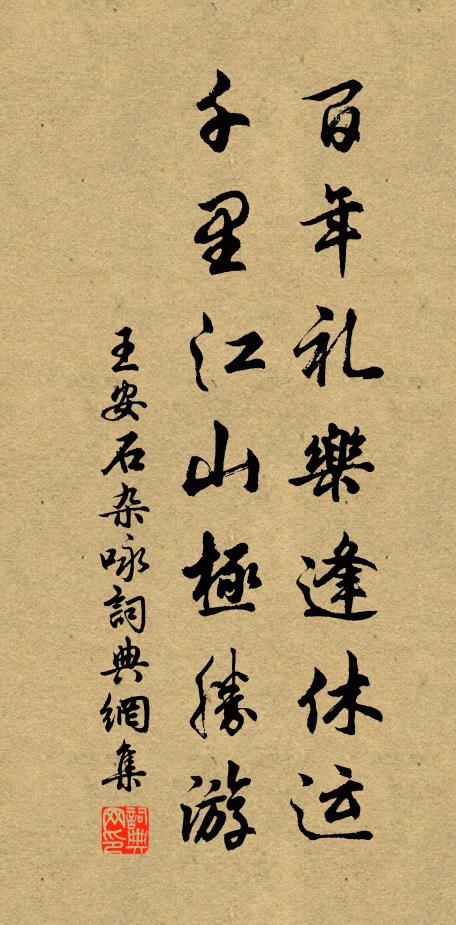 百年礼樂逢休运
千里江山極勝游
王安石杂咏詞典網集
詞典網印